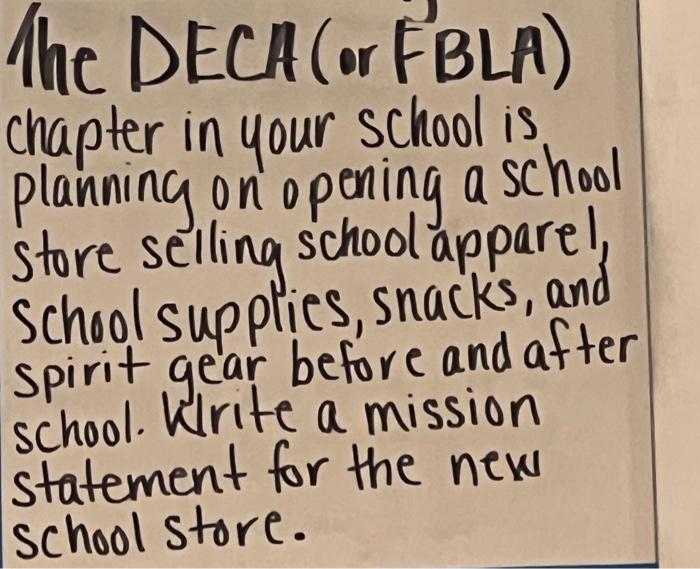 The DECA (or FBLA)
chapter in your school is
planning on opening a school
store selling school apparel,
school supplies, snacks, and
spirit gear before and after
school. Write a mission
statement for the new
school store.